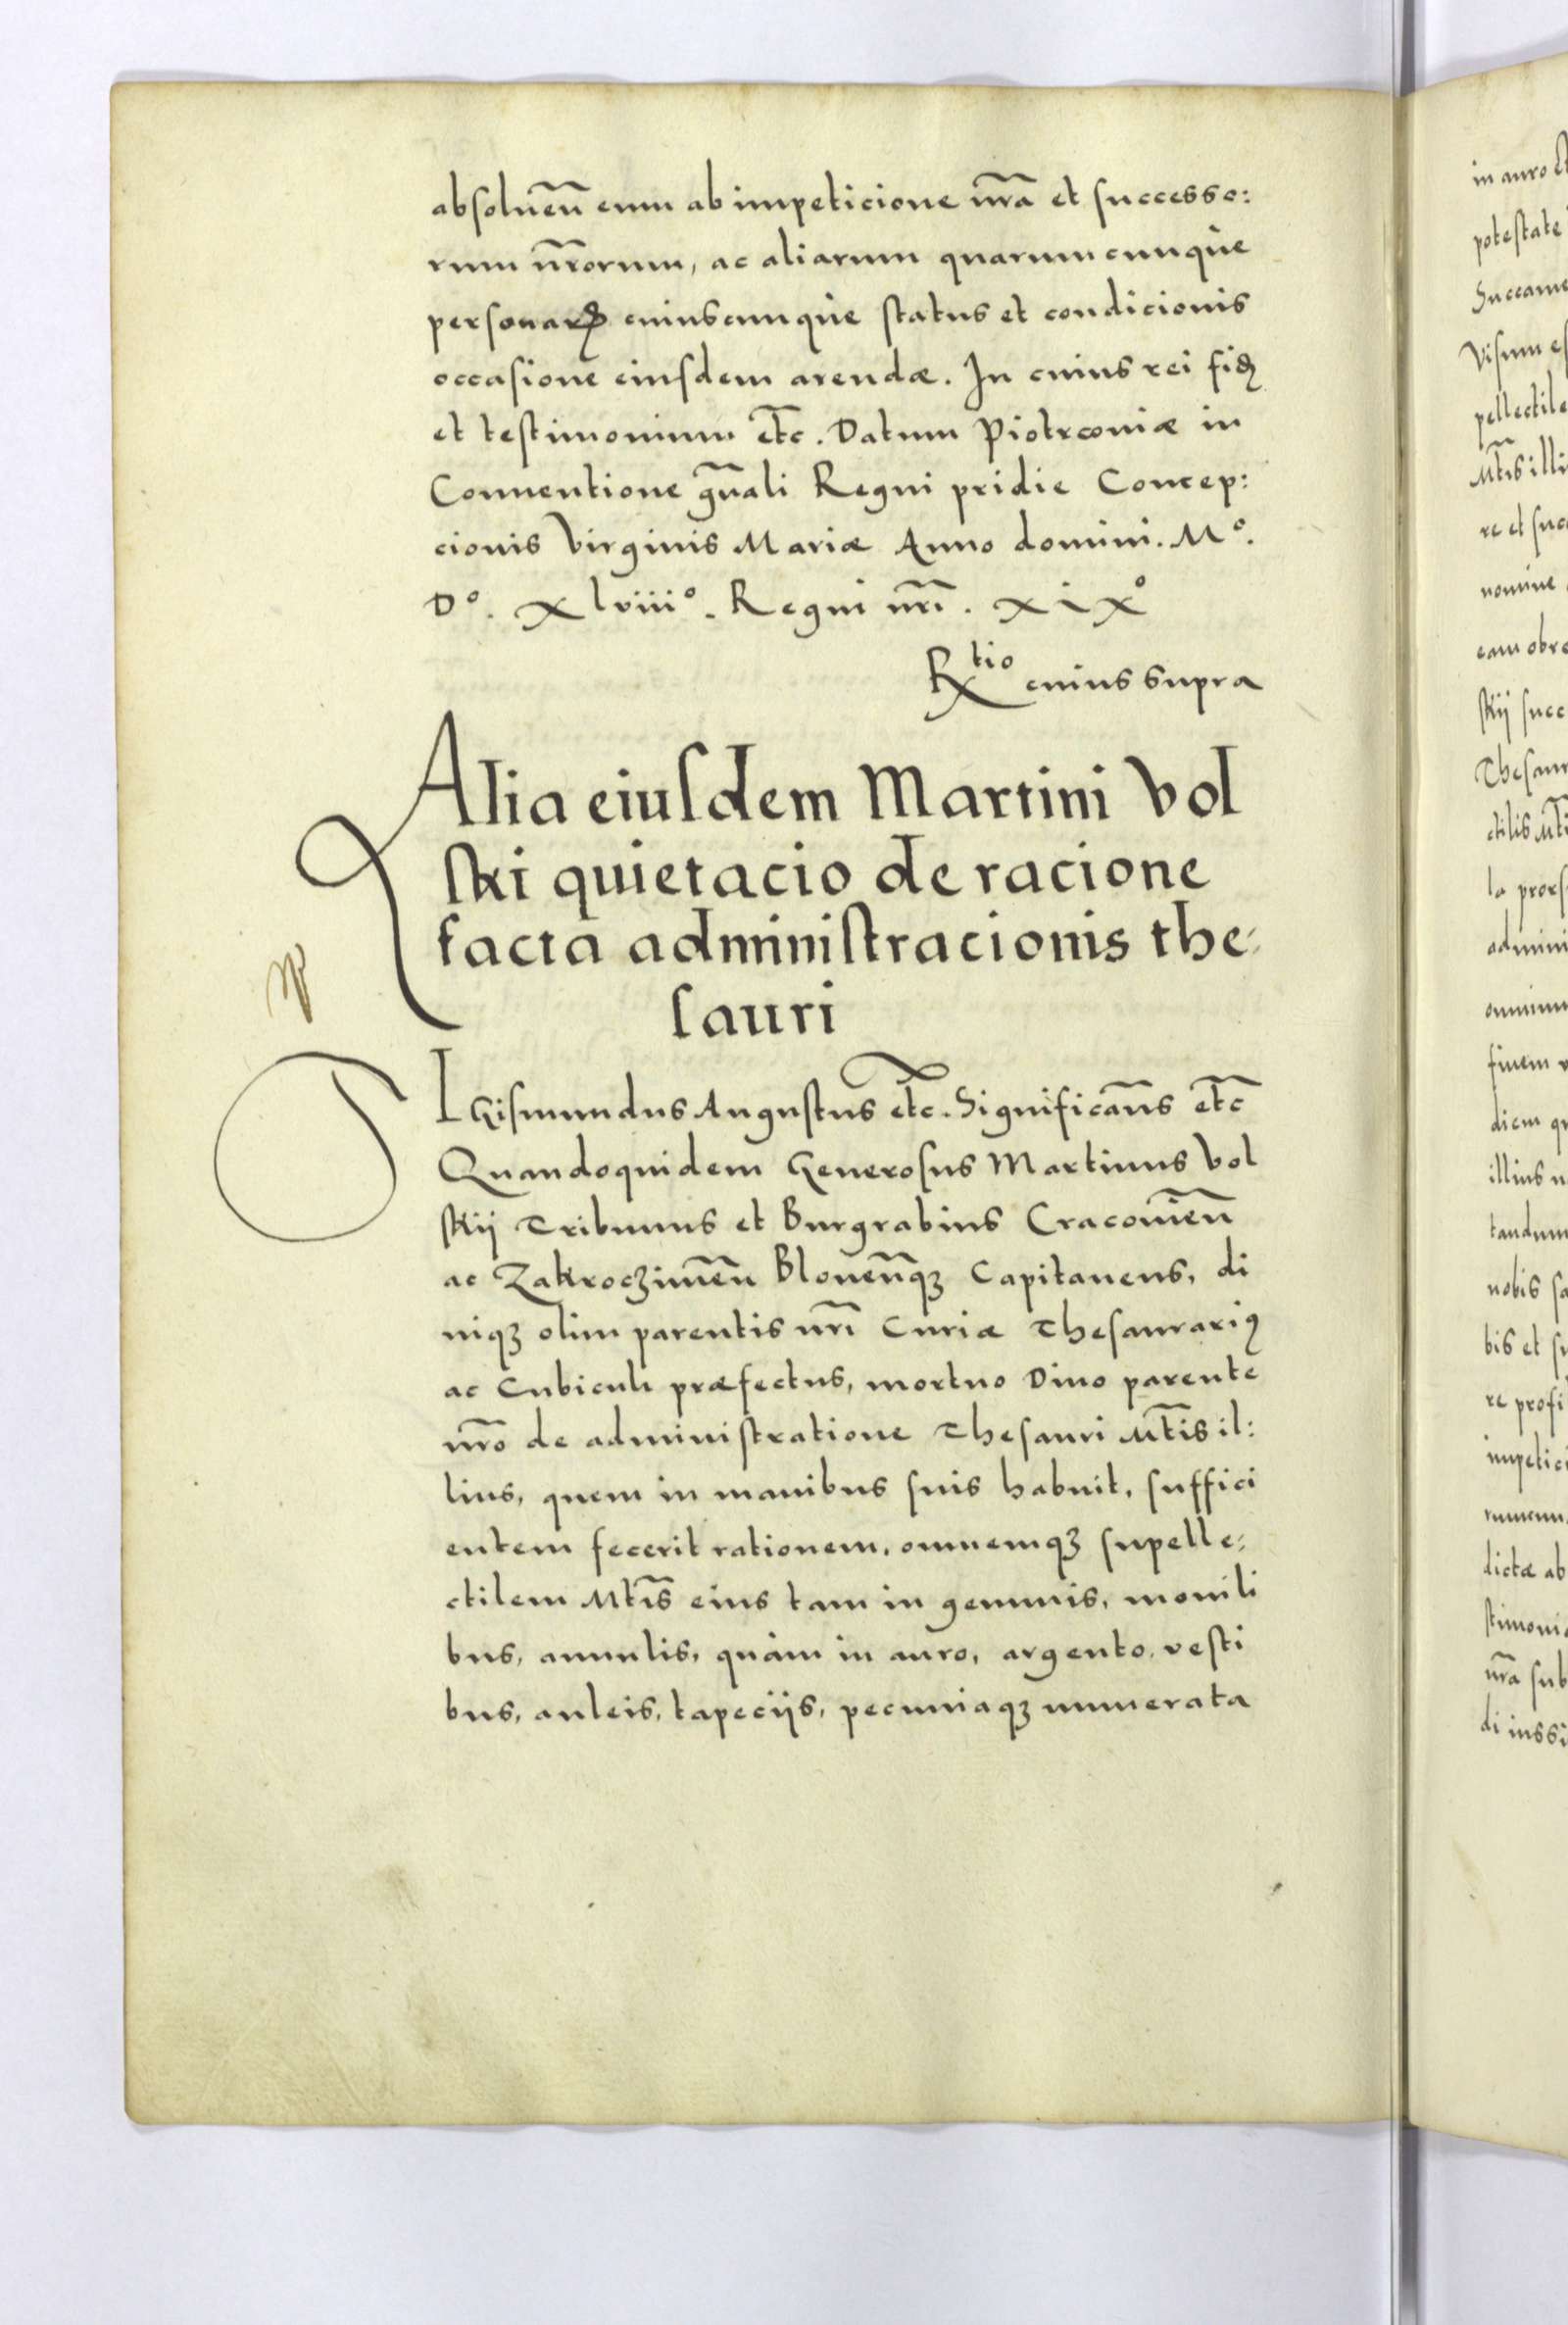 absoluen̄ eum ab impeticione nr̄a et successo:
rum nr̄orum, ac aliarum quarumcunque
personarꝝ cuiuscunque status et condicionis
occasione eiusdem arendæ. In cuius rei fidꝫ
et testimonium etc̄. Datum Piotrcouiæ in
Conuentione gn̄ali Regni pridie Concep:
cionis Virginis Mariæ Anno domini. Mº.
Dº. Xlviiiº. Regni nr̄i. xixº
Rtio cuius supra
Alia eiusdem Martini Vol
ski quietacio de racione
facta administracionis the:
sauri
IGismundus Augustus etc̄. Significam̄s etc̄
Quandoquidem Generosus Martinus Vol
skij Tribunus et Burgrabius Cracouien̄
ac Zakrocziman̄ Blonen̄qꝫ Capitaneus, di
uiqꝫ olim parentis nr̄i Curiæ Thesaurariꝰ
ac Cubiculi præfectus, mortuo Diuo parente
nr̄o de administratione Thesauri Mt̄is il:
lius, quem in manibus suis habuit, suffici
entem fecerit rationem, omnemqꝫ supelle:
ctilem Mt̄is eius tam in gemmis, monili
bus, annulis, quàm in auro, argento, vesti
bus, auleis, tapecijs, pecuniaqꝫ numerata
in auro
potestate
Succame
Visum es
pellectile
Mt̄is illi
re et suc
nomine
eam obre
skij succ
Thesaur
ctilis Mt̄i
la prors
admini
omnium
finem
diem qu
illius
tandum
nobis sa
bis et su
re profi
impetici
rumcun
dictæ ab
stimoni
nr̄a sub
di iussi